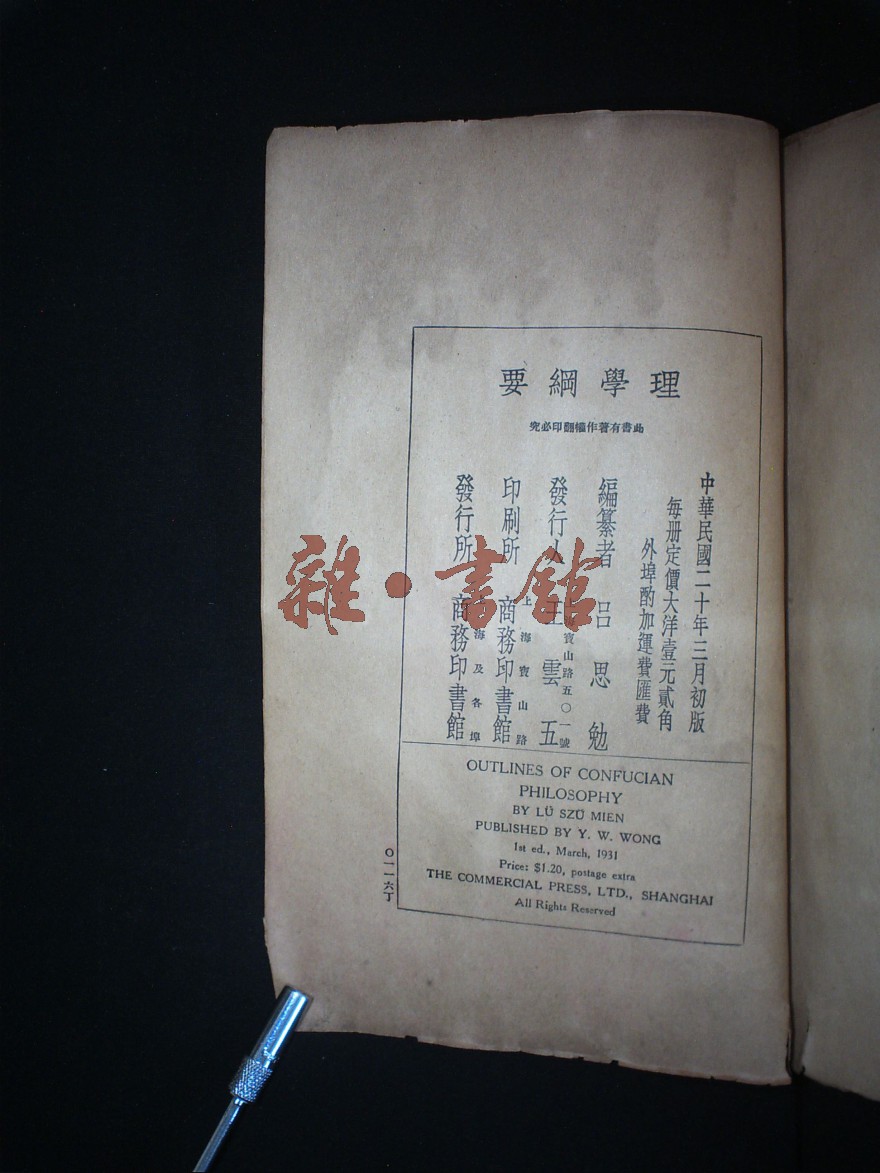 理學綱要
此書有著作權翻印必究
中華民國二十年三月初版
每册定價大洋壹元貳角
外埠酌加運費匯費
編纂者 呂思勉
發行人 王雲五
上海寶山路五〇一號
印刷所 商務印書館
上海寶山路
發行所 商務印書館
上海及各埠
OUTLINES OF CONFUCIAN
PHILOSOPHY
BY LÜ SZŬ MIEN
PUBLISHED BY Y. W. WONG
1st ed., March, 1931
Price: $1.20, postage extra
THE COMMERCIAL PRESS, LTD., SHANGHAI
All Rights Reserved
〇一一六丁
雜·書館